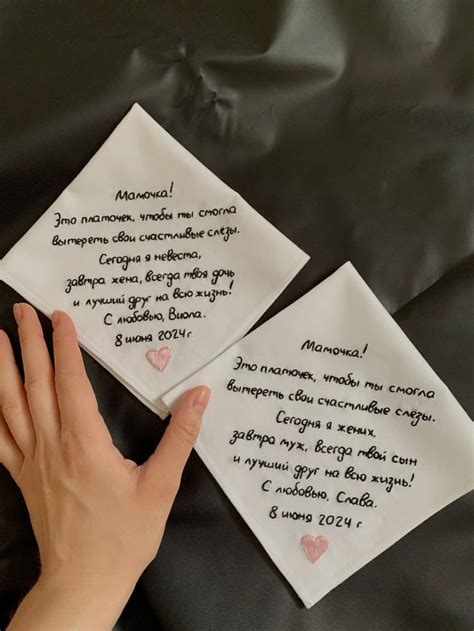 Мамочка!
Это платочек, чтобы ты смогла
вытереть свои счастливые слёзы.
Сегодня я невеста,
завтра жена, всегда твоя дочь
и лучший друг на всю жизнь!
С любовью, Виола.
8 июня 2024 г.
Мамочка!
Это платочек, чтобы ты смогла
вытереть свои счастливые слёзы.
Сегодня я жених,
завтра муж, всегда твой сын
и лучший друг на всю жизнь!
С любовью, Слава.
8 июня 2024 г.